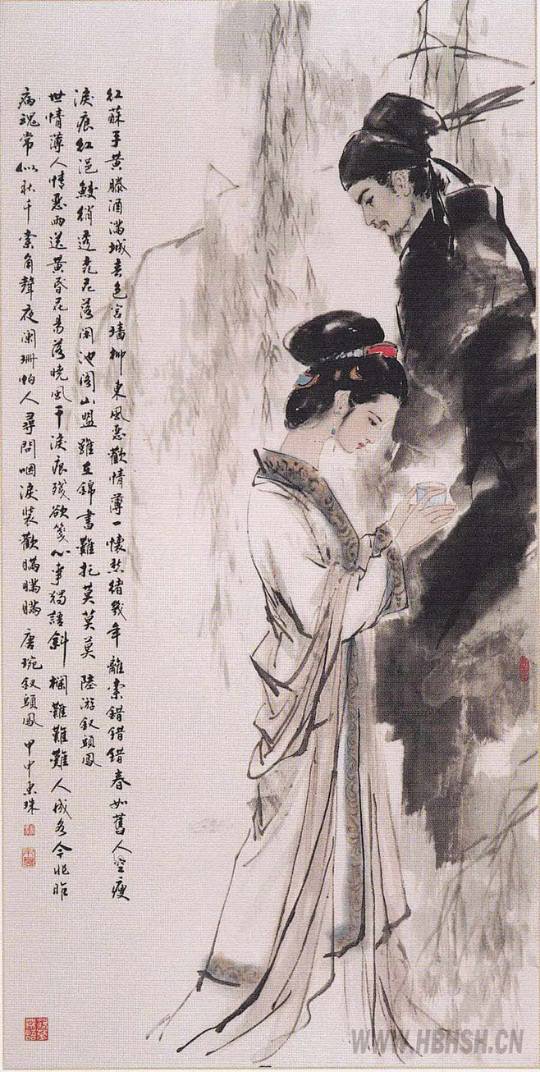 红酥手黄縢酒滿城春色宫墙柳東風惡歡情薄一懷愁緒幾年離索錯錯錯春如舊人空瘦
淚痕红浥鲛绡透桃花落闲池阁山盟雖在錦書難托莫莫莫 陸游釵頭鳳
世情薄人情惡雨送黄昏花易落曉風干淚痕殘欲箋心事獨語斜欄難難難人成各今非昨
病魂常似秋千索角聲夜闌珊怕人尋問咽淚装歡瞞瞞瞞 唐琬釵頭鳳 甲申東珠
WWW.HBHSH.CN